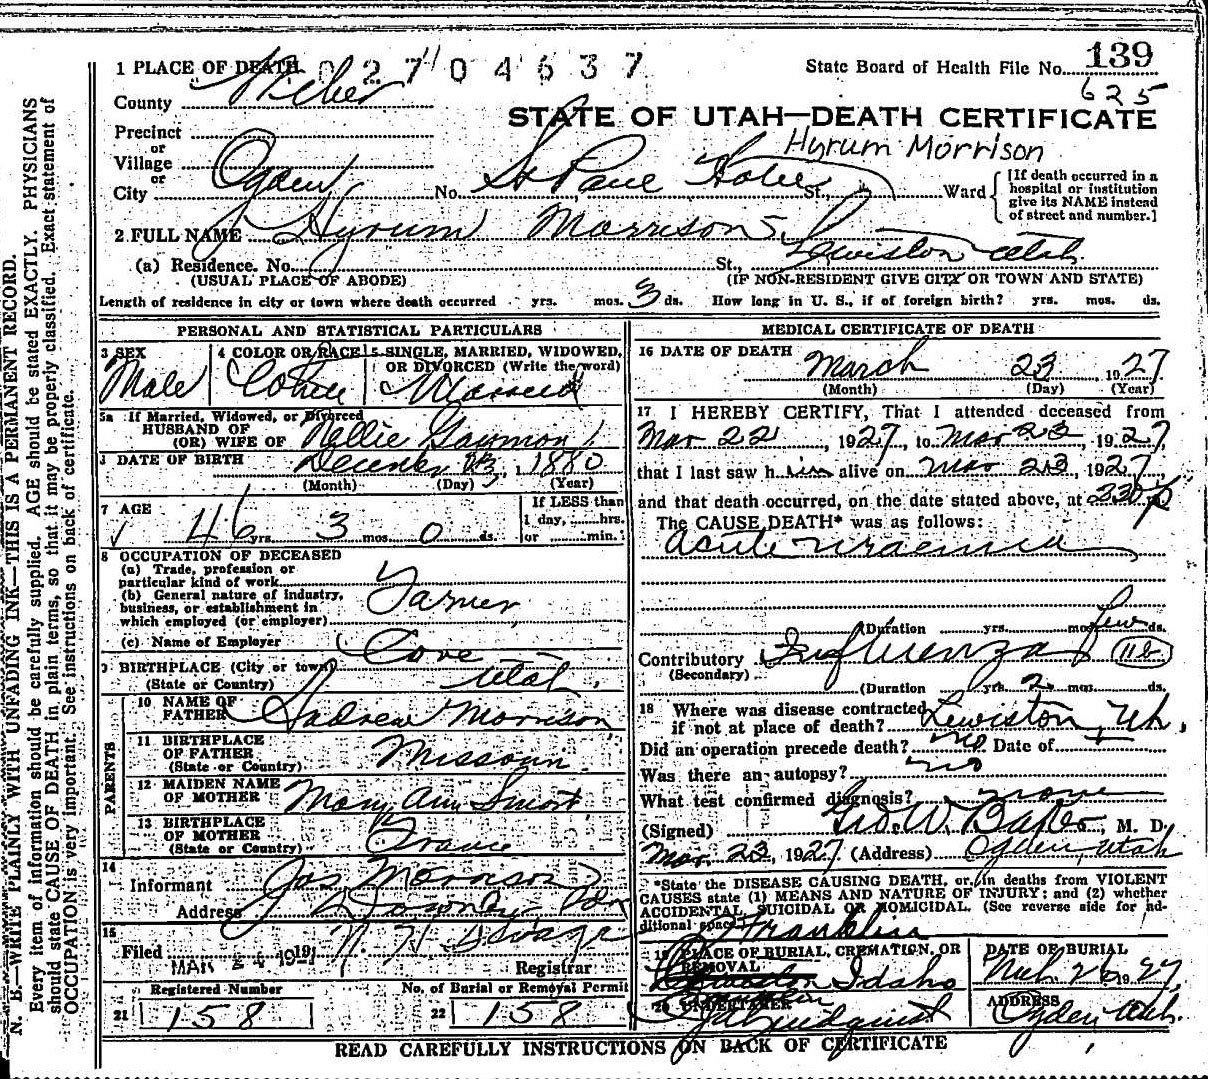 1 PLACE OF DEATH 02704637
State Board of Health File No. 139
625
County Weber
STATE OF UTAH—DEATH CERTIFICATE
Hyrum Morrison
Precinct
or
Village
or
City Ogden No. St Paul Hotel St. Ward
[If death occurred in a
hospital or institution
give its NAME instead
of street and number.]
2 FULL NAME Hyrum Morrison
(a) Residence. No. St., Lewiston Utah.
(USUAL PLACE OF ABODE) (IF NON-RESIDENT GIVE CITY OR TOWN AND STATE)
Length of residence in city or town where death occurred yrs. mos. 3 ds. How long in U. S., if of foreign birth? yrs. mos. ds.
PERSONAL AND STATISTICAL PARTICULARS
3 SEX 4 COLOR OR RACE 5 SINGLE, MARRIED, WIDOWED,
OR DIVORCED (Write the word)
Male White Married
5a If Married, Widowed, or Divorced
HUSBAND OF
(OR) WIFE OF Nellie Gaymon
DATE OF BIRTH December 23, 1880
(Month) (Day) (Year)
7 AGE 46 yrs. 3 mos. 0 ds.
If LESS than
1 day, hrs.
or min.
8 OCCUPATION OF DECEASED
(a) Trade, profession or
particular kind of work
(b) General nature of industry,
business, or establishment in
which employed (or employer)
Farmer
(c) Name of Employer
9 BIRTHPLACE (City or town) Cove
(State or Country) Utah.
PARENTS
10 NAME OF
FATHER Andrew Morrison
11 BIRTHPLACE
OF FATHER
(State or Country) Missouri
12 MAIDEN NAME
OF MOTHER Mary Ann Smart
13 BIRTHPLACE
OF MOTHER
(State or Country) France
14
Informant Jas Morrison
Address Downey, Ida
15
Filed MAR 24 191 Registrar
Registered Number No. of Burial or Removal Permit
21 158 22 158
MEDICAL CERTIFICATE OF DEATH
16 DATE OF DEATH
March 23, 1927
(Month) (Day) (Year)
17 I HEREBY CERTIFY, That I attended deceased from
Mar 22, 1927, to Mar 23, 1927,
that I last saw him alive on Mar 23, 1927,
and that death occurred, on the date stated above, at 230 p
The CAUSE DEATH* was as follows:
acute uraemia
(Duration yrs. mos. few ds.
Contributory Influenza 11b
(Secondary)
(Duration yrs. 2 mos. ds.
18 Where was disease contracted
if not at place of death? Lewiston, Ut.
Did an operation precede death? no Date of
Was there an autopsy? no
What test confirmed diagnosis? none
(Signed) Geo. W. Baker, M. D.
Mar. 23, 1927 (Address) Ogden, Utah
*State the DISEASE CAUSING DEATH, or, in deaths from VIOLENT
CAUSES state (1) MEANS AND NATURE OF INJURY; and (2) whether
ACCIDENTAL, SUICIDAL OR HOMICIDAL. (See reverse side for ad-
ditional space.)
Franklin
19 PLACE OF BURIAL, CREMATION, OR
REMOVAL
Idaho
DATE OF BURIAL
Mch 26 1927
20 UNDERTAKER
Lindquist
ADDRESS
Ogden, Utah.
READ CAREFULLY INSTRUCTIONS ON BACK OF CERTIFICATE
N. B.—WRITE PLAINLY WITH UNFADING INK—THIS IS A PERMANENT RECORD.
Every item of information should be carefully supplied. AGE should be stated EXACTLY. PHYSICIANS
should state CAUSE OF DEATH in plain terms, so that it may be properly classified. Exact statement of
OCCUPATION is very important. See instructions on back of certificate.